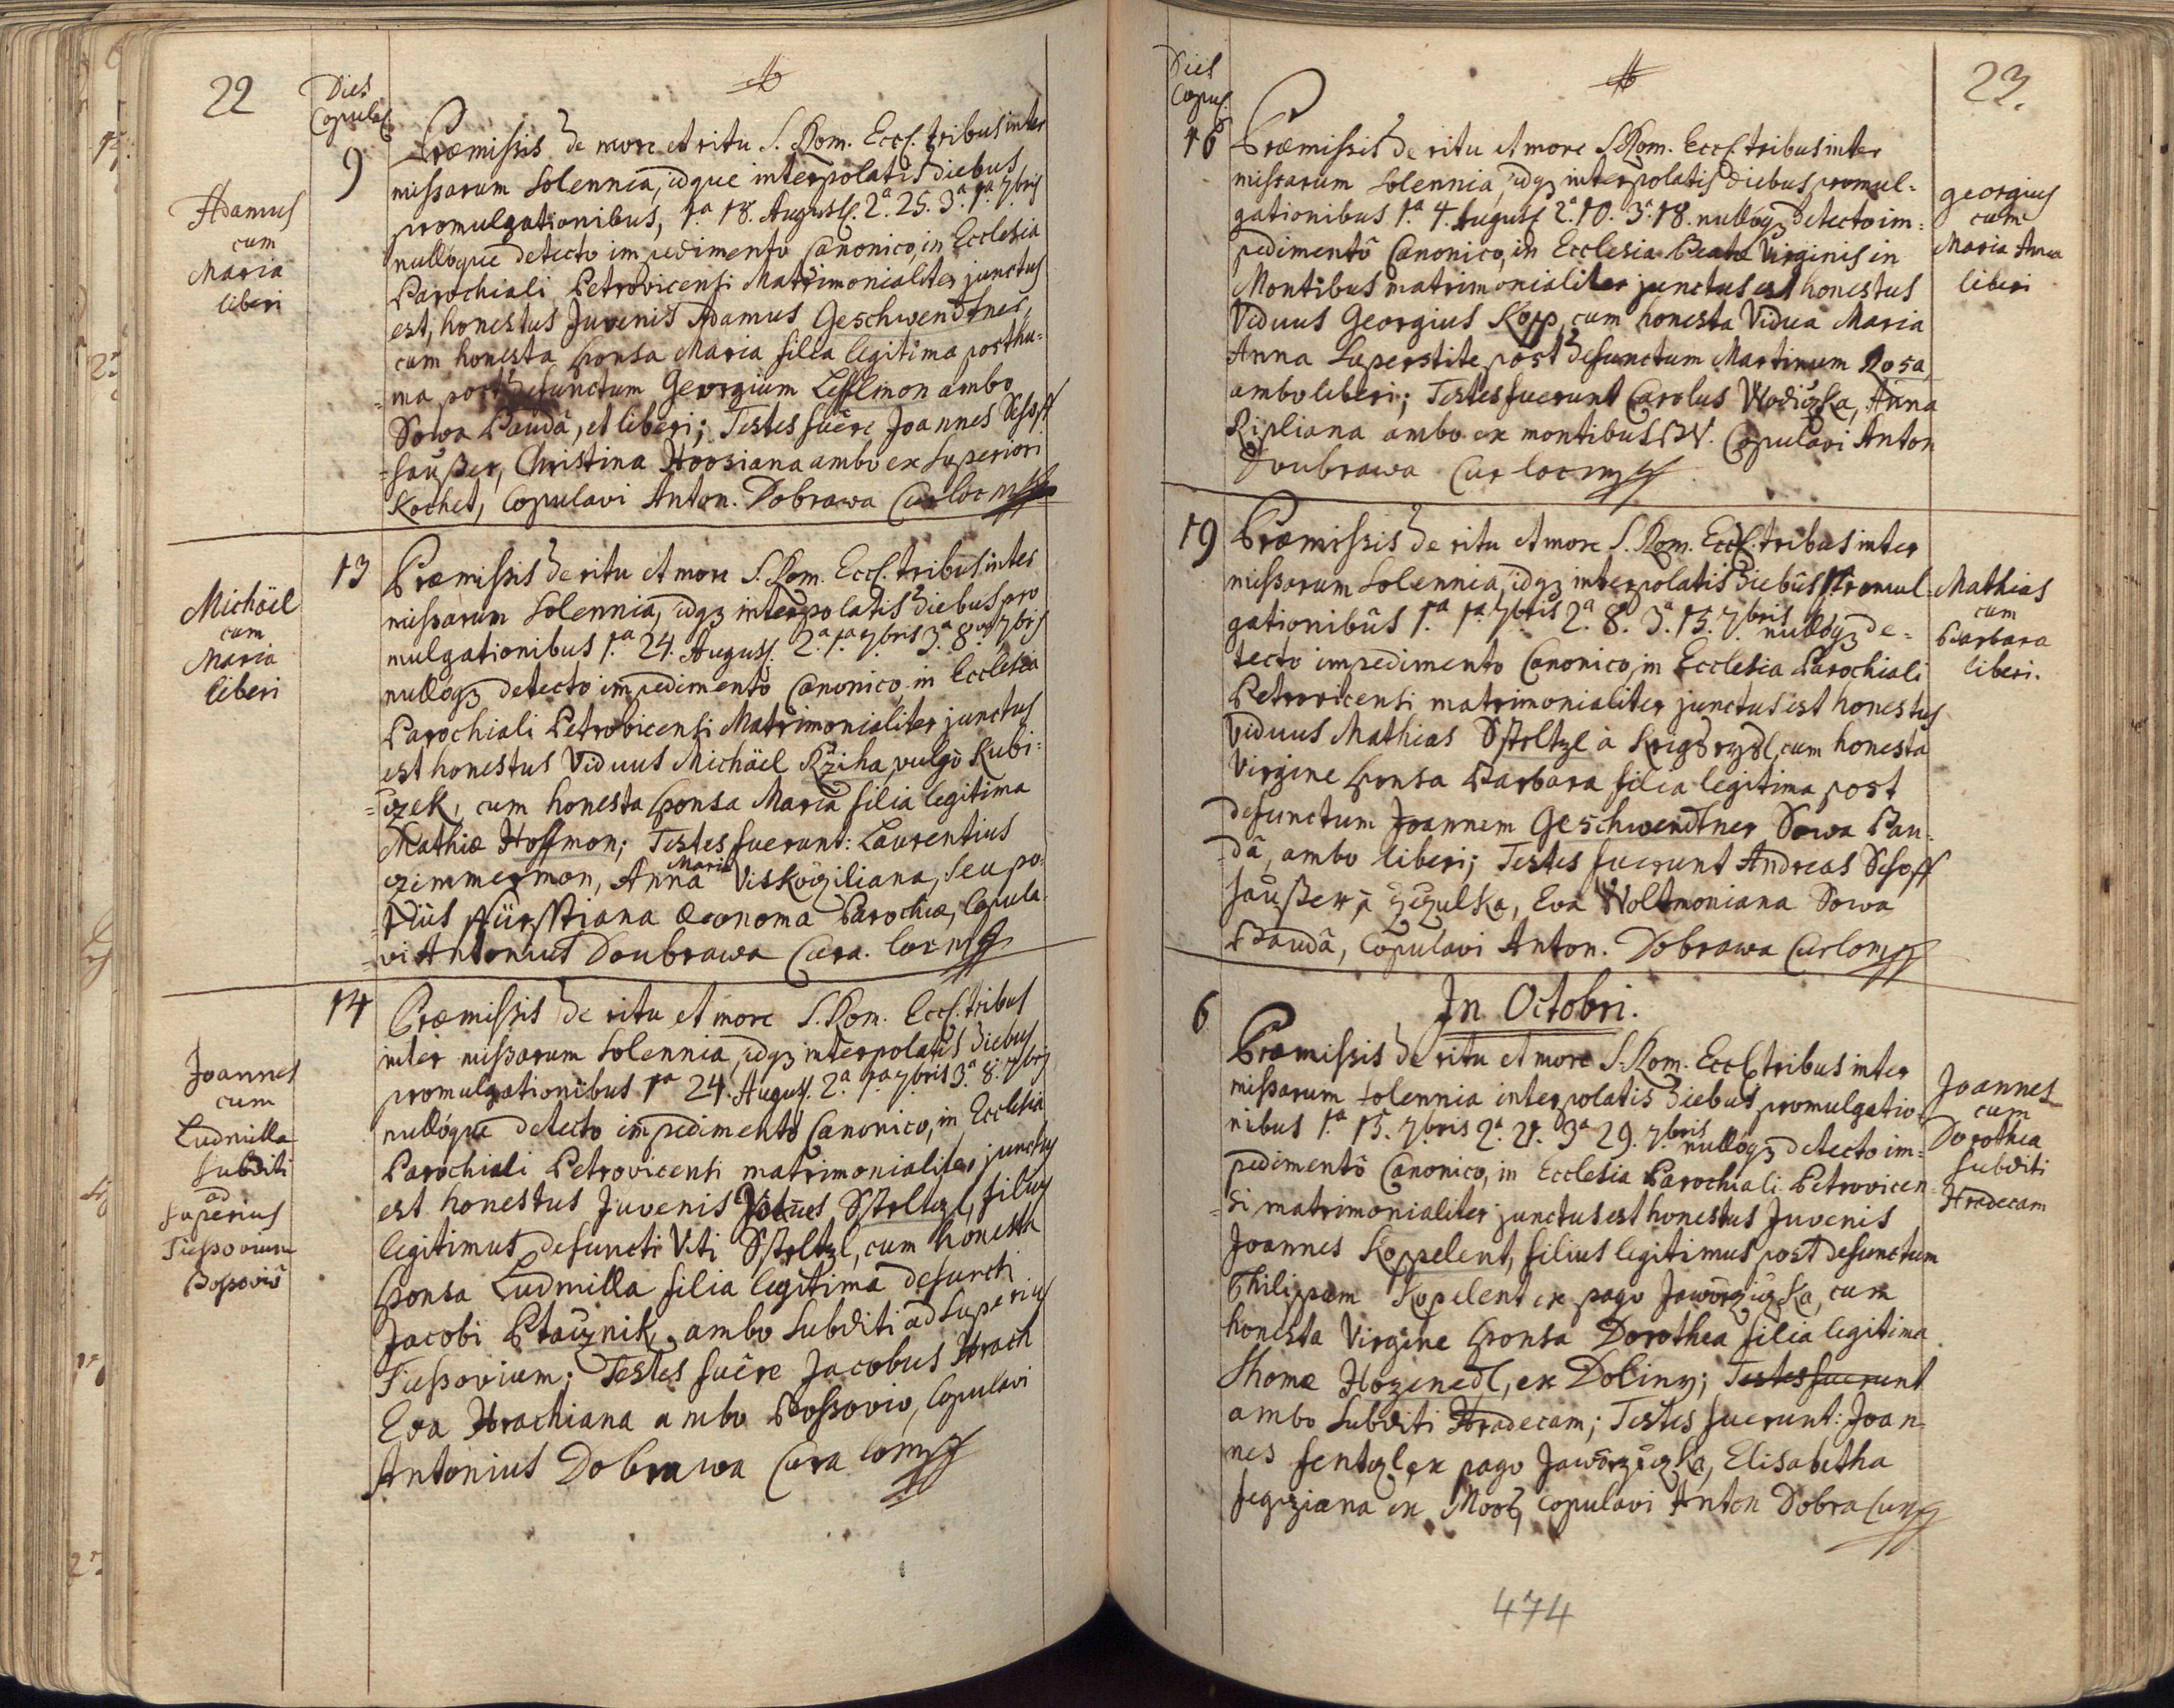 22
Dies
Copulaõ
9
Adamus
cum
Maria
liberi
Præmissis de more et ritu S. Rom. Eccl. tribus inter
missarum Solennia, idque interpolatis diebus
promulgationibus, 1.a 18. Augusti. 2.a 25. 3.a 1.a 7bris
nullóque detecto impedimento Canonico, in Ecclesia
Parochiali Petrovicensi Matrimonialiter junctus
est, honestus Juvenis Adamus Geschwendtner,
cum honesta sponsa Maria filia legitima posthu=
=ma post defunctum Georgium Lesslmon ambo
Sowa Paudâ, et liberi; Testes fuêre Joannes Schoff
=haußer, Christina Hoosiana ambo ex Superiori
Kochet, Copulavi Anton. Dobrawa Cur loc mp
13
Michäel
cum
Maria
liberi
Præmissis de ritu et more S. Rom. Eccl. tribus inter
missarum Solennia, idq3 interpolatis diebus pro
mulgationibus 1.a 24. August. 2.a 1.a 7bris 3.a 8va 7bris
nullóq3 detecto impedimento Canonico, in Ecclesia
Parochiali Petrovicensi Matrimonialiter junctus
est honestus Viduus Michäel Rziha vulgò Kubi=
=czek, cum honesta sponsa Maria filia legitima
Mathiæ Hoffmon; Testes fuerunt: Laurentius
Maria
czimmermon, Anna Viskocziliana, seu po=
=tiùs Fürsstiana Œconoma Parochiæ, Copula
=vi Antonius Doubrawa Cura. loc mp
14
Joannes
cum
Ludmilla
subditi
ad
superius
Tiessovium
Bossoviô
Præmissis de ritu et more S. Rom. Eccl. tribus
inter missarum Solennia, idq3 interpolatis diebus
promulgationibus 1.a 24. August. 2.a 1.a 7bris 3.a 8. 7bris
nullóque detecto impedimentô Canonico, in Ecclesia
Parochiali Petrovicensi matrimonialiter junctus
est honestus Juvenis Joañes Sstoltzl, filius
legitimus defuncti Viti Sstoltzl, cum honesta
sponsa Ludmilla filia legitima defuncti
Jacobi Ptacznik, ambo Subditi ad Superius
Tiessovium; Testes fuêre Jacobus Hrach
Eva Hrachiana ambo Bossovio, Copulavi
Antonius Dobrawa Cura lo mp
Dies
Copul.
23.
16
georgius
cum
Maria Anna
liberi
Præmissis de ritu et more S. Rom. Eccl. tribus inter
missarum Solennia, idq3 interpolatis diebus promul=
gationibus 1.a 4. August. 2.a 10. 3.a 18. nullóq3 detecto im=
pedimentô Canonico, in Ecclesia Beatæ Virginis in
Montibus matrimonialiter junctus est honestus
Viduus Georgius Kopp, cum honesta Vidua Maria
Anna Superstite post defunctum Martinum Rosa,
ambo liberi; Testes fuerunt Carolus Wodiczka, Anna
Ripliana ambo ex montibus BV. Copulavi Anton
Doubrawa Cur loc mp
19
Mathias
cum
Barbara
liberi.
Præmissis de ritu et more S. Rom. Eccl. tribus inter
missarum Solennia, idq3 interpolatis diebus promul
gationibus 1.a 1.a 7bris 2.a 8. 3.a 15. 7bris nullóq3 de=
tecto impedimento Canonico, in Ecclesia Parochiali
Petrovicensi matrimonialiter junctus est honestus
Viduus Mathias Sstoltzl à Krigsrzydl, cum honesta
Virgine sponsa Barbara filia legitima post
defunctum Joannem Geschwendtner Sowa Pau=
=dâ, ambo liberi; Testes fuerunt Andreas Schoff
haußer à Zczulka, Eva Woltmoniana Sowa
Paudâ, Copulavi Anton. Dobrawa Cur lo mp
In Octobri.
6
Joannes
cum
Dorothea
subditi
Hradecam
Præmissis de ritu et more S. Rom. Eccl. tribus inter
missarum Solennia interpolatis diebus promulgatio=
nibus 1.a 15. 7bris 2.a 21. 3.a 29. 7bris nullóq3 detecto im=
pedimentô Canonico, in Ecclesia Parochiali Petrovicen
=si matrimonialiter junctus est honestus Juvenis
Joannes Koppelent, filius legitimus post defunctum
Philippum Kopelent ex pago Jaworzuzka, cum
honesta Virgine sponsa Dorothea filia legitima
Thomæ Hozenedl, ex Doliny; Testes fuerunt
ambo Subditi Hradecam; Testes fuerunt: Joan
nes Jentzl ex pago Jaworzuzka, Elisabetha
ex Moos, copulavi Anton Dobra Cur mp
474